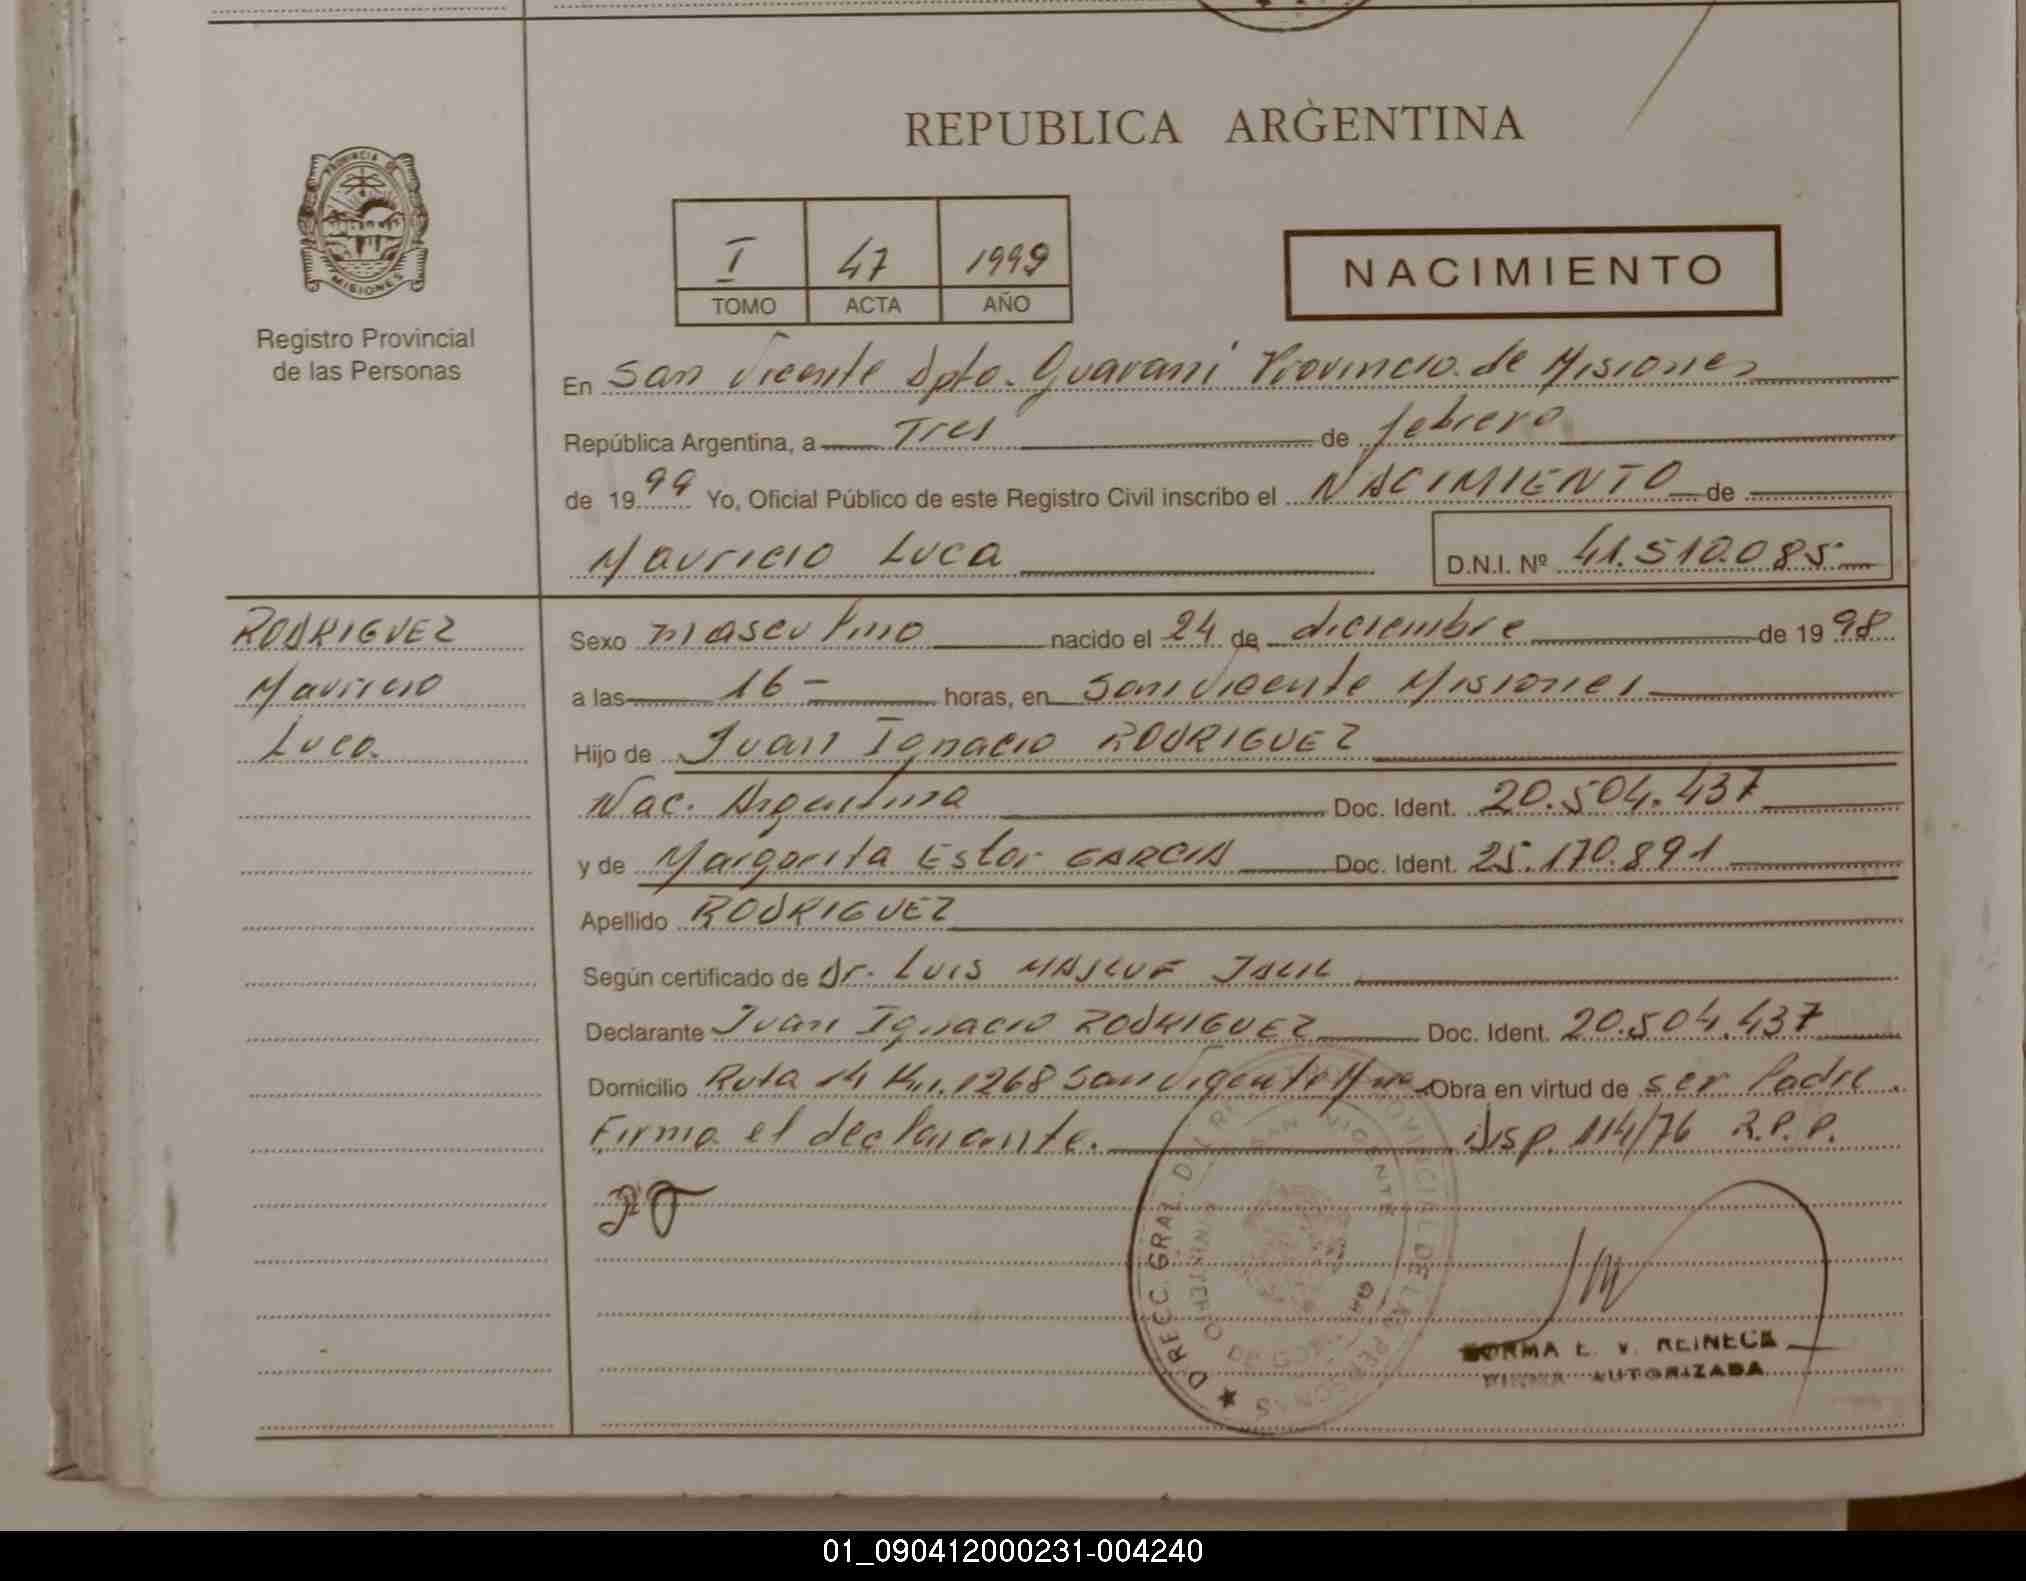 REPUBLICA ARGENTINA
PROVINCIA DE
MISIONES
Registro Provincial
de las Personas
I 47 1999
TOMO ACTA AÑO
NACIMIENTO
En San Vicente Dpto. Guarani Provincia de Misiones
República Argentina, a Tres de febrero
de 1999 Yo, Oficial Público de este Registro Civil inscribo el NACIMIENTO de
Mauricio Luca D.N.I. Nº 41.510.085
RODRIGUEZ
Mauricio
Luca
Sexo masculino nacido el 24 de diciembre de 1998
a las 16 - horas, en San Vicente Misiones
Hijo de Juan Ignacio RODRIGUEZ
Nac. Argentina Doc. Ident. 20.504.437
y de Margarita Ester GARCIA Doc. Ident. 25.170.891
Apellido RODRIGUEZ
Según certificado de Dr. Luis
Declarante Juan Ignacio RODRIGUEZ Doc. Ident. 20.504.437
Domicilio Ruta 14 Km. 1268 San Vicente Mnes Obra en virtud de ser Padre.
Firma el declarante. Disp. 114/76 R.P.P.
DIRECC. GRAL. DEL REG. PROVINCIAL DE LAS PERSONAS
SAN VICENTE
NORMA E. V. REINECK
FIRMA AUTORIZADA
01_090412000231-004240